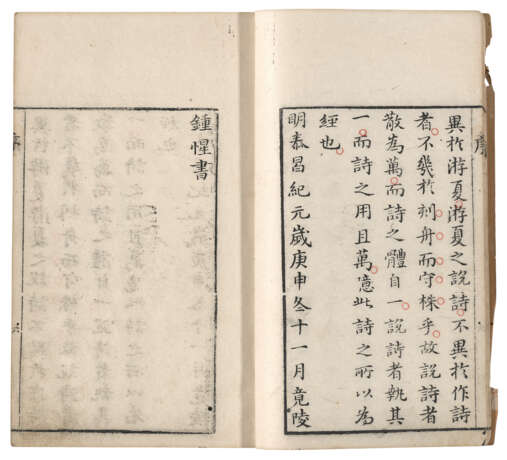 序
異於游夏游夏之說詩不異於作詩
者不幾於刻舟而守株乎故說詩者
散為萬而詩之體自一說詩者執其
一而詩之用且萬噫此詩之所以為
經也
明泰昌紀元歲庚申冬十一月竟陵
鍾惺書
序
六